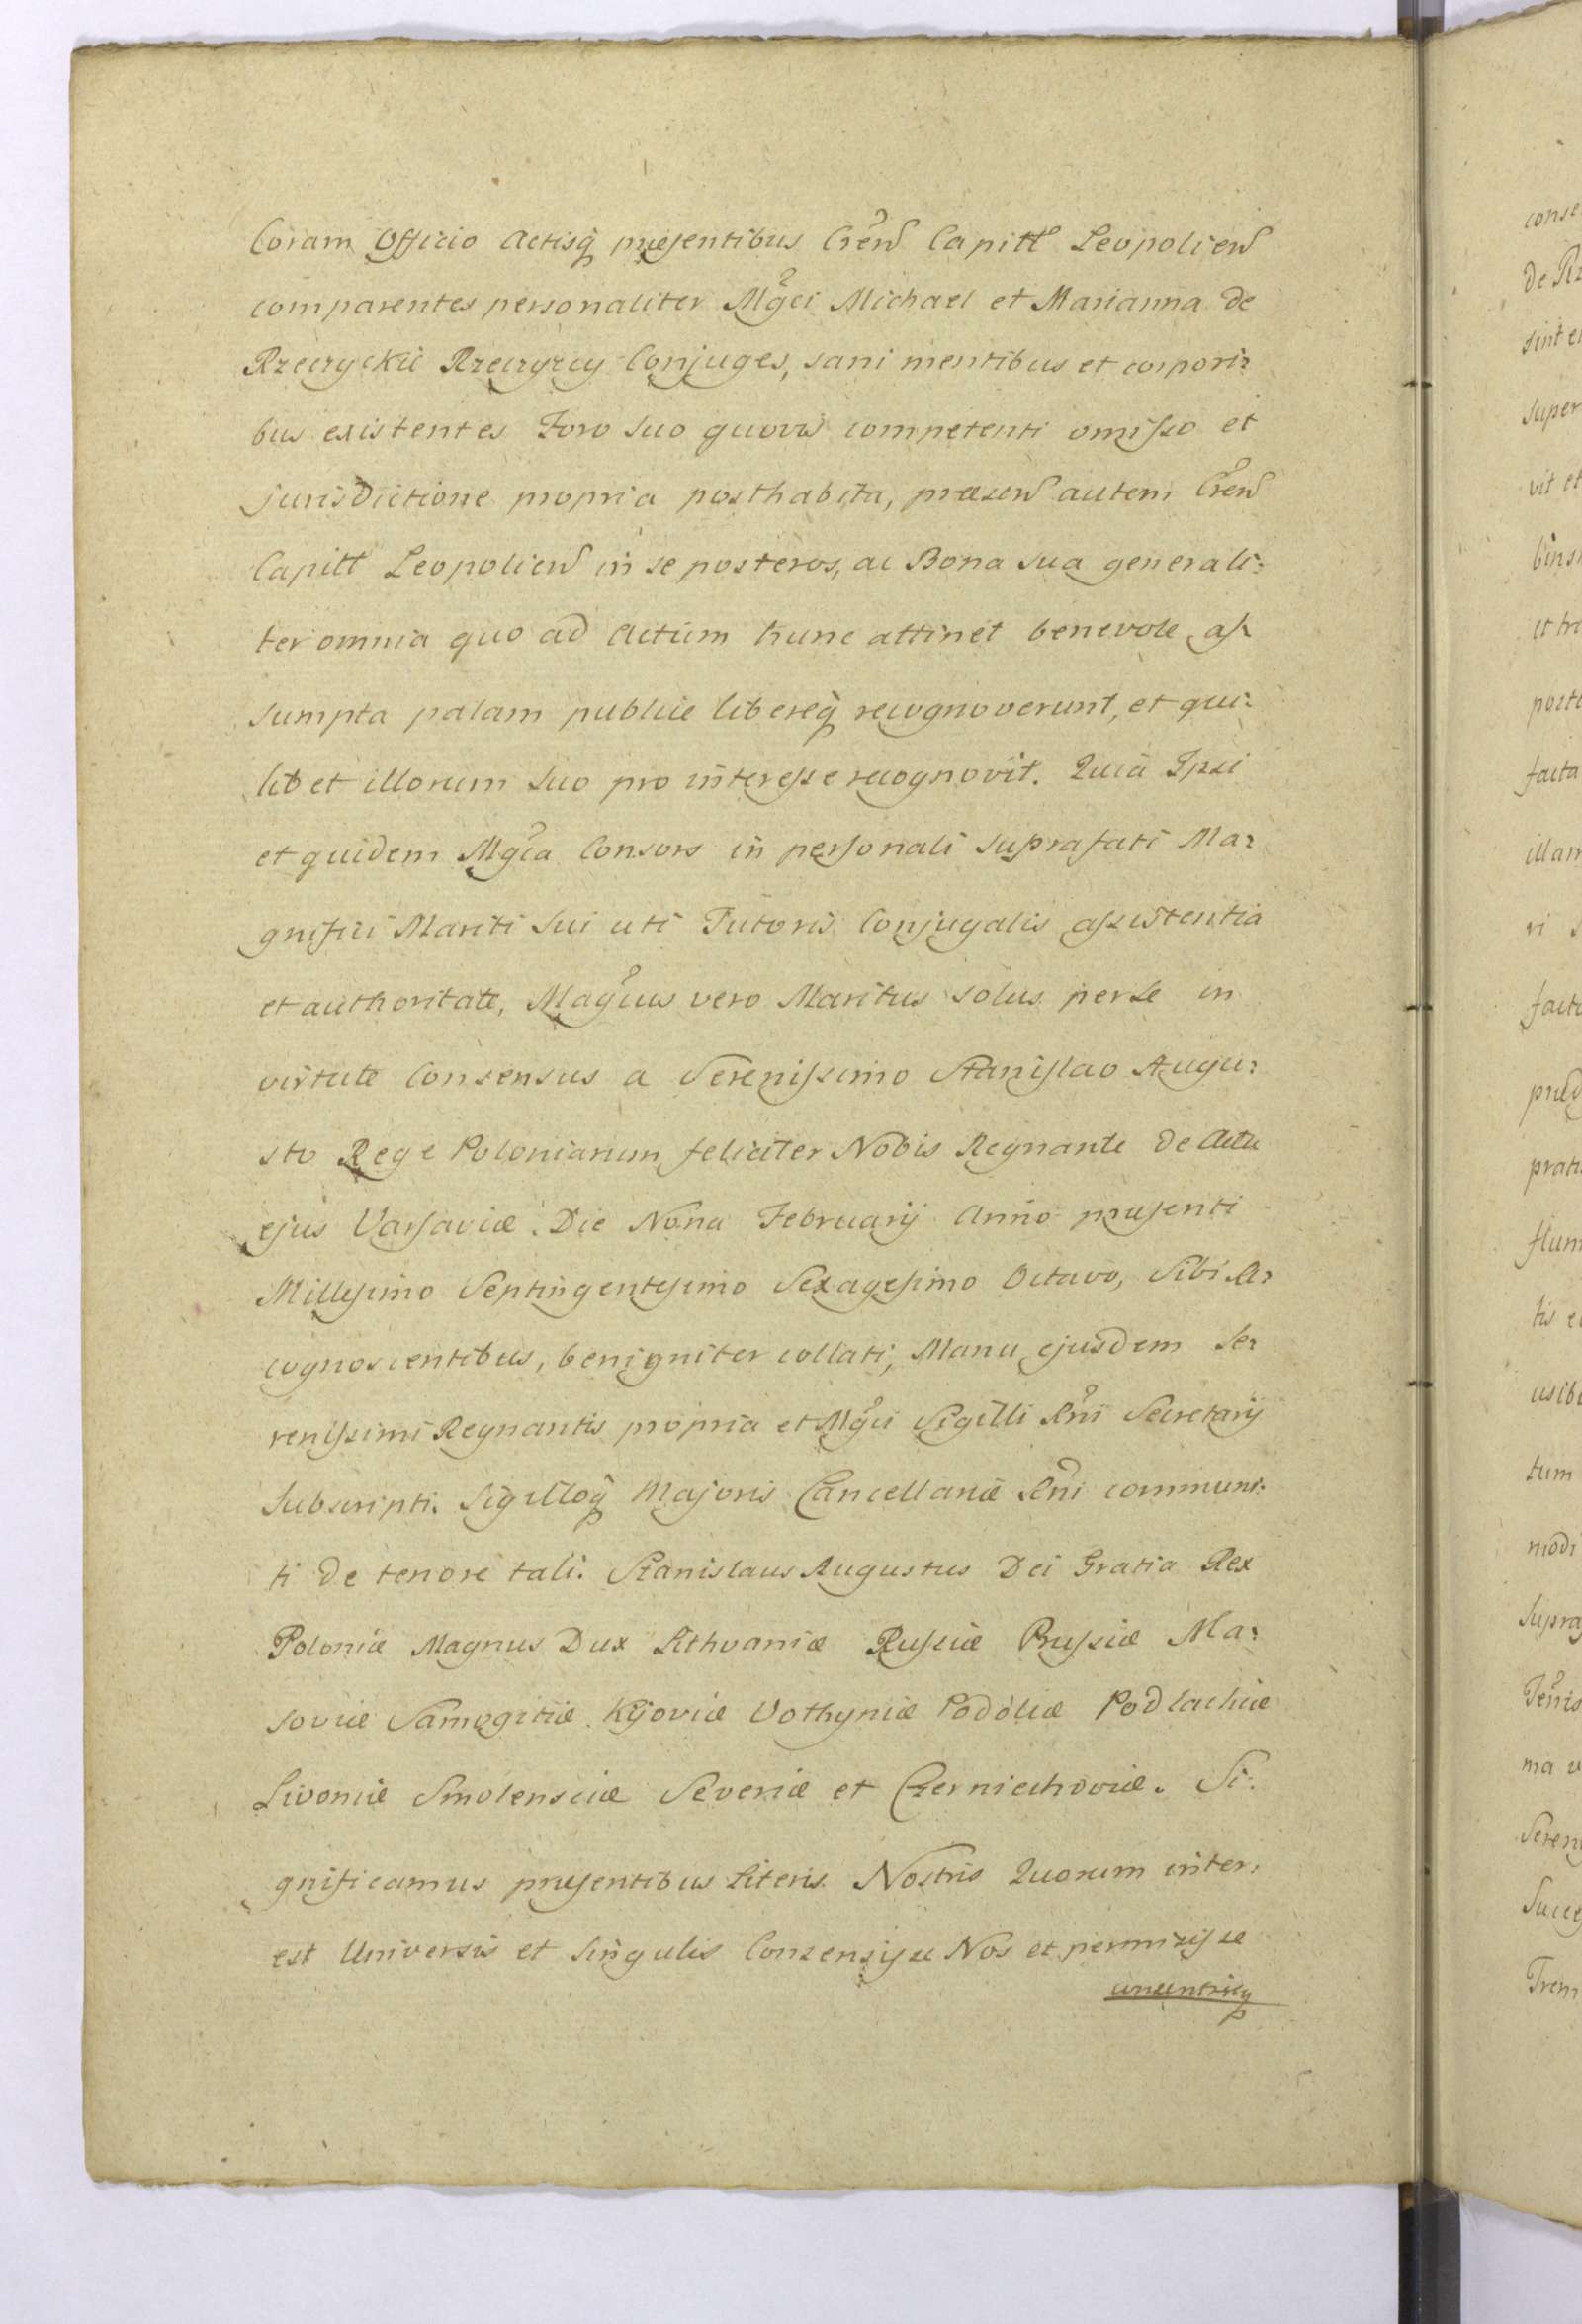 Coram Officio Actisq̃ præsentibus Crẽn Capitl Leopolien
comparentes personaliter Mg̃ci Michael et Marianna de
Rzeczyckie Rzeczyccy Conjuges, sani mentibus et corpori:
bus existentes Foro suo quovis competenti omisso et
jurisdictione propria posthabita, præsen autem Crẽn
Capitl Leopolien in se posteros, ac Bona sua generali:
ter omnia quo ad Actum hunc attinet benevole as:
sumpta palam publice libereq̃ recognoverunt, et qui:
libet illorum suo pro interesse recognovit. Quia Ipsi
et quidem Mg̃ca Consors in personali suprafati Ma:
gnifici Mariti sui uti Tutoris Conjugalis assistentia
et authoritate, Mag̃cus vero Maritus solus per se in
virtute Consensus a Serenissimo Stanislao Augu:
sto Rege Poloniarum feliciter Nobis Regnante de Actu
ejus Varsaviæ Die Nona Februarij Anno præsenti
Millesimo Septingentesimo Sexagesimo Octavo, Sibi Re:
cognoscentibus, benigniter collati, Manu ejusdem Se:
renissimi Regnantis propria et Mg̃ci Sigilli Rñi Secretarij
Subscripti. Sigilloq̃ Majoris Cancellariæ Rñi communi:
ti de tenore tali. Stanislaus Augustus Dei Gratia Rex
Poloniæ Magnus Dux Lithvaniæ Russiæ Prussiæ Ma:
soviæ Samogitiæ Kijoviæ Volhyniæ Podoliæ Podlachiæ
Livoniæ Smolensciæ Severiæ et Czerniechoviæ. Si:
gnificamus præsentibus Literis Nostris Quorum inter:
est Universis et singulis Consensisse Nos et permisisse